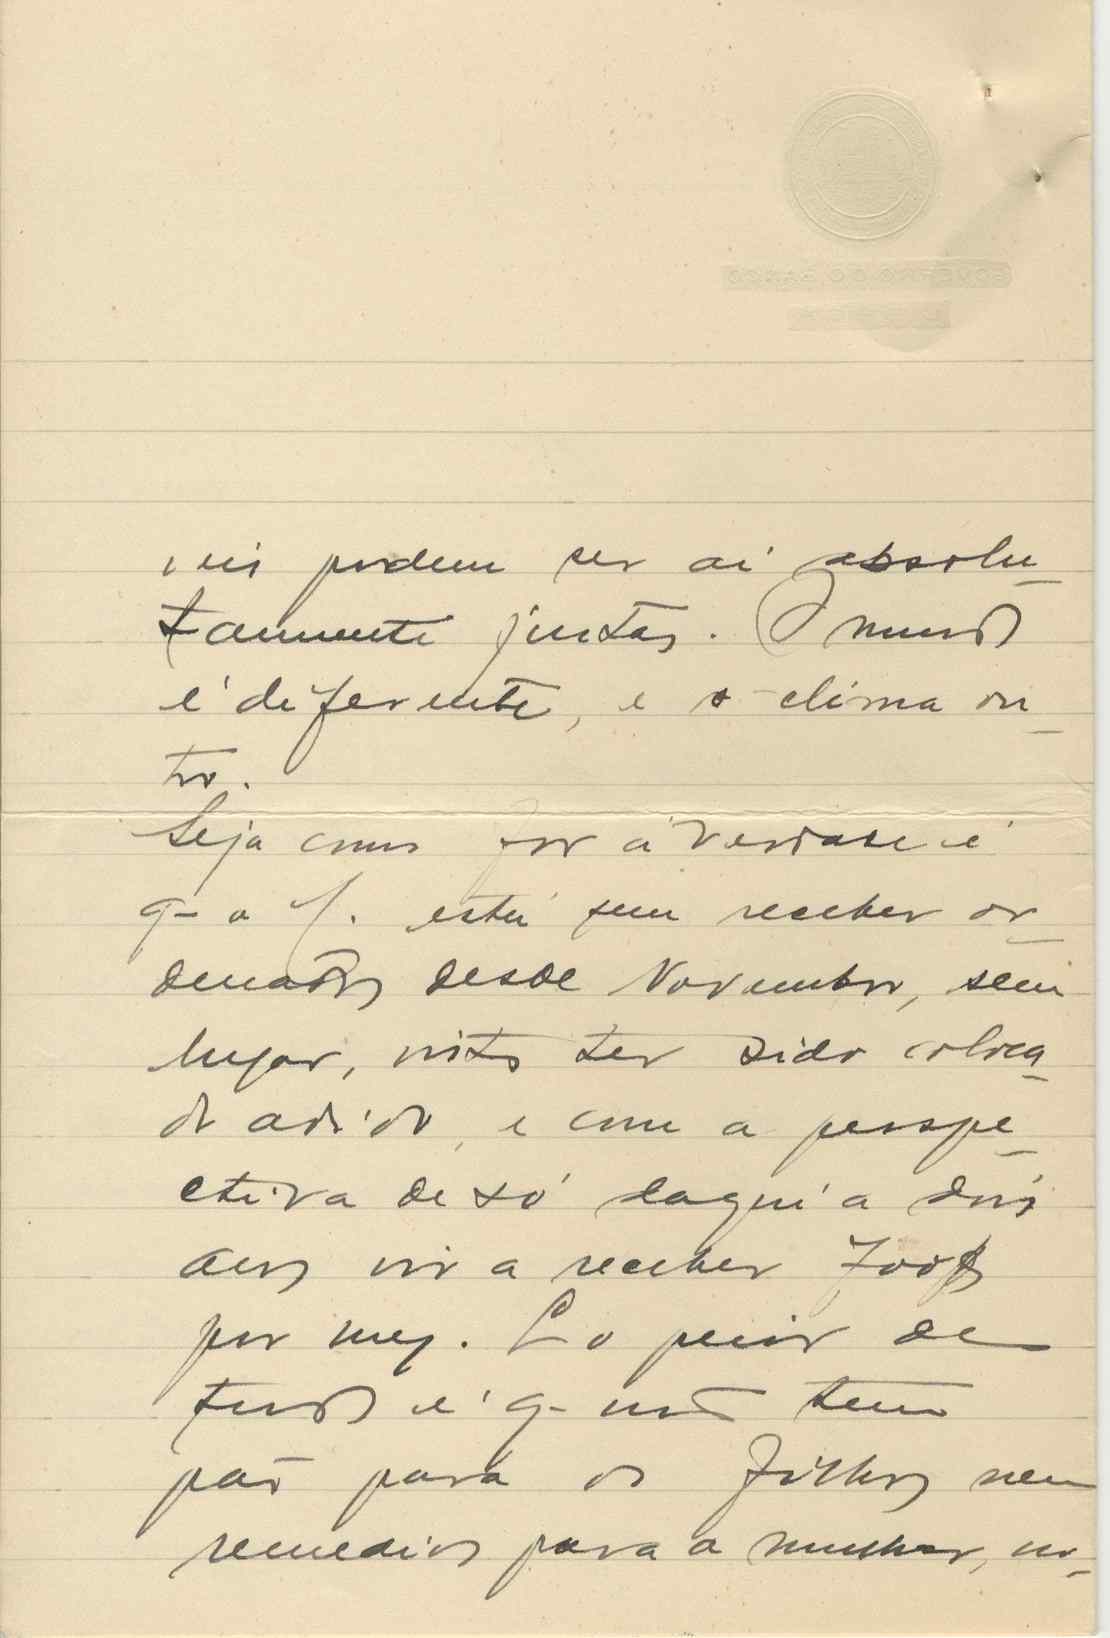 veis podem ser ai absolu-
tamente justas. O mundo
é diferente, e o clima ou-
tro.
Seja como for a verdade é
q- o J. está sem receber or-
denados desde Novembro, sem
lugar, visto ter sido coloca-
do adido, e com a perspe-
ctiva de só daqui a dois
anos vir a receber 700$
por mez. E o peior de
tudo é q- não tem
pão para os filhos nem
remedios para a mulher, no-